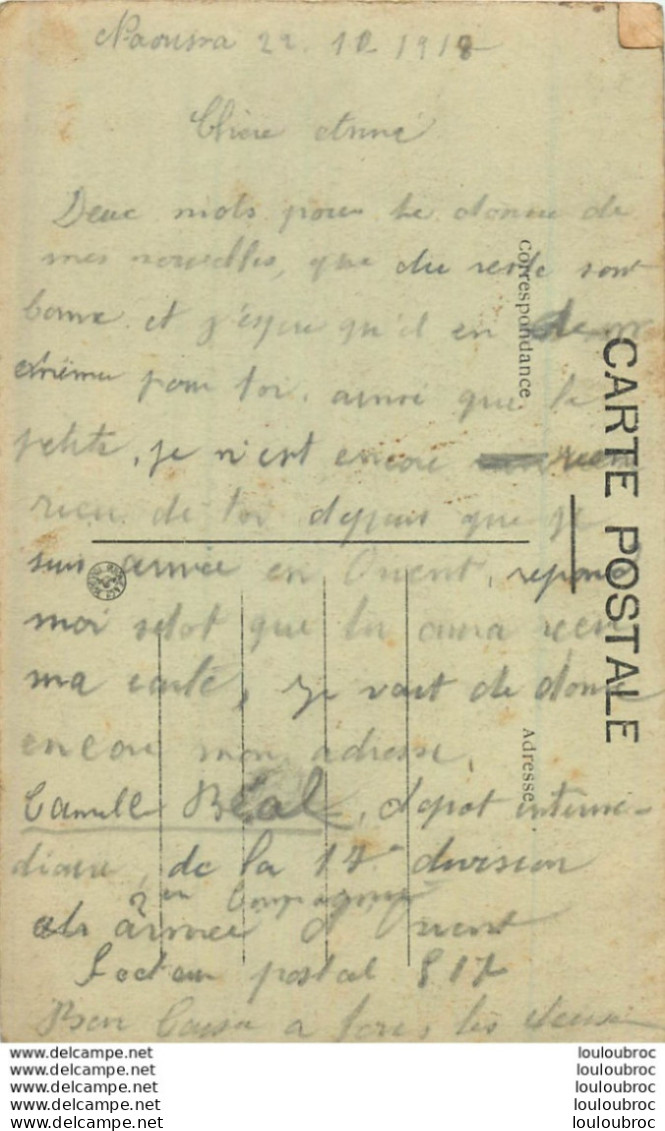 Naoussa 22.10.1918
Chere
Deux mots pour te donne de
mes nouvelles, que du reste sont
bonne et j'espere qu'il en
pour toi, ainsi que la
petite, je n'est encore
rien de toi depuis que je
suis arrivée en Orient, repond
moi sitot que tu aura recu
ma carte, je vait te donne
encore mon adresse,
Camille Béal, depot interme-
diaire, de la 17e division
2em Compagnie
armée d'Orient
Secteur postal 517
Bon Caisse a tous les deux
CARTE POSTALE
Correspondance
Adresse
www.delcampe.net
www.delcampe.net
www.delcampe.net
www.delcampe.net
www.delcampe.net
louloubroc
louloubroc
louloubroc
louloubroc
louloubroc